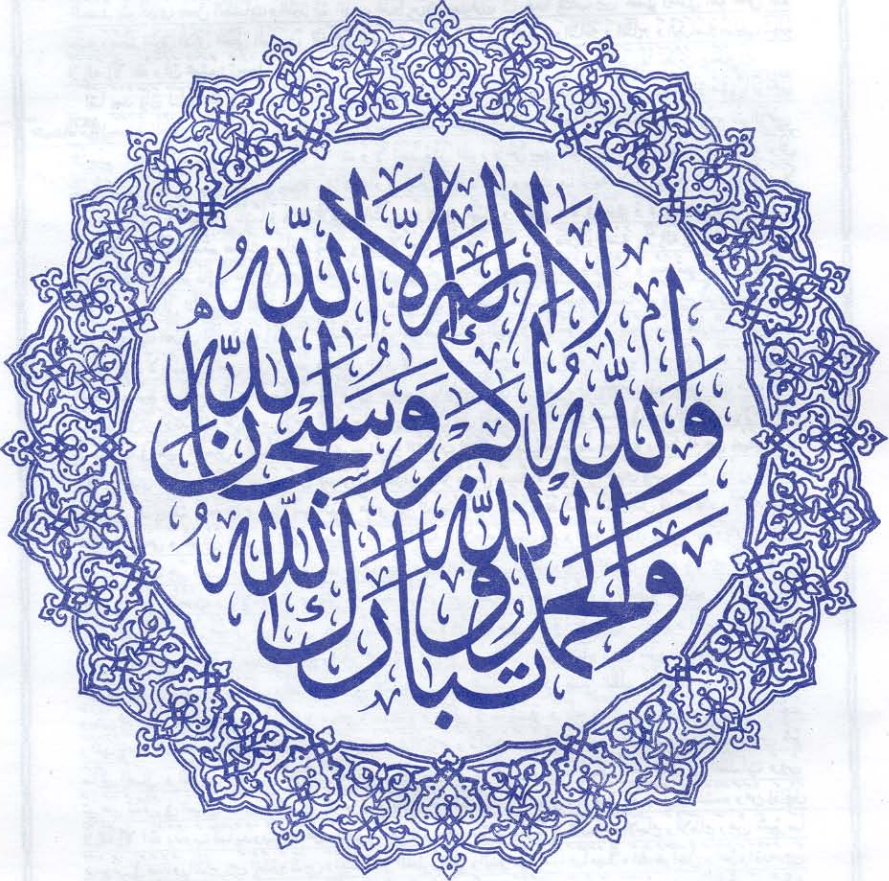 لَا إِلٰهَ إِلَّا اللّٰهُ
وَاللّٰهُ أَكْبَرُ وَسُبْحٰنَ اللّٰهِ
وَالْحَمْدُ لِلّٰهِ وَتَبَارَكَ اللّٰهُ